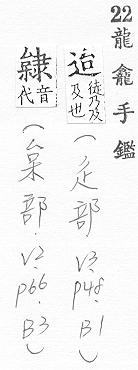 22 龍龕手鑑
迨 徒乃反及也 (辵部. V2. p48. B1)
隸 音代 (枲部. V2. p66. B3)